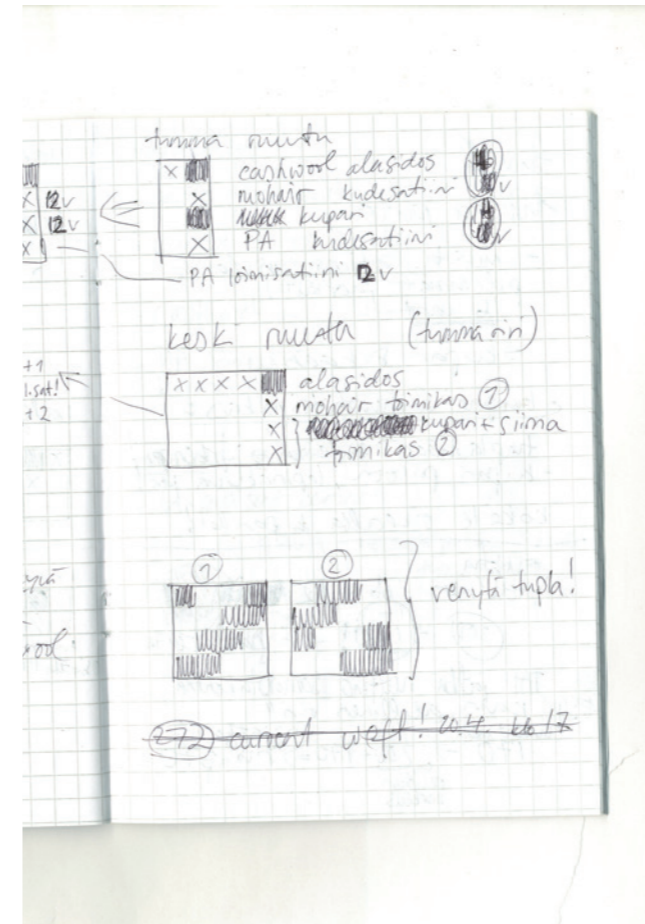 tumma ruutu
x cashwool alasidos
x 12v x mohair kudesatiini v
x 12v kupari
x x PA kudesatiini v
PA loimisatiini 12v
keski ruutu (tumma rivi)
+1 x x x x alasidos
.sat! x mohair toimikas ①
+2 x kupari + siima
x toimikas ②
① ②
venytä tupla!
ool
272 current weft! 20.4. klo 17